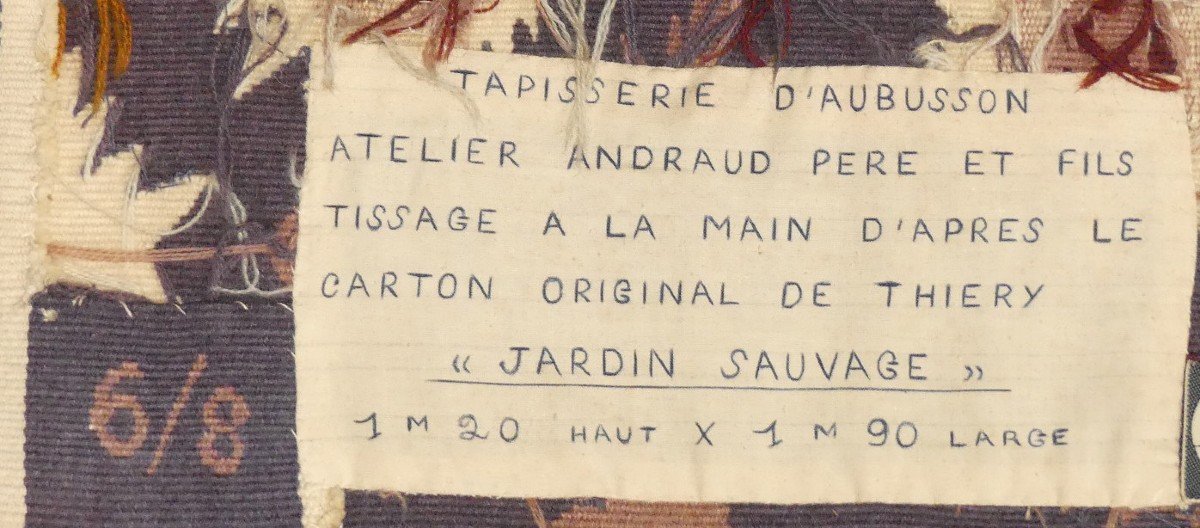 TAPISSERIE D'AUBUSSON
ATELIER ANDRAUD PERE ET FILS
TISSAGE A LA MAIN D'APRES LE
CARTON ORIGINAL DE THIERY
« JARDIN SAUVAGE »
1 M 20 HAUT X 1 M 90 LARGE
6/8